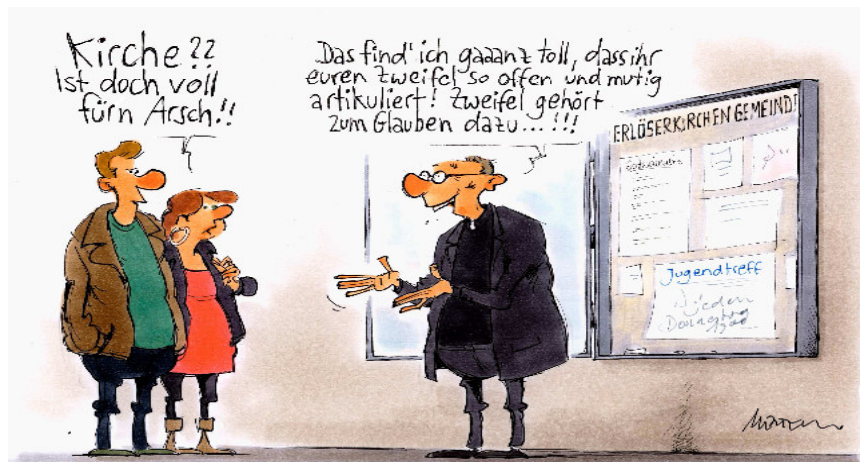 Kirche??
Ist doch voll
fürn Arsch!!
Das find' ich gaaanz toll, dass ihr
euren Zweifel so offen und mutig
artikuliert! Zweifel gehört
zum Glauben dazu...!!!
ERLÖSERKIRCHEN GEMEINDE
Jugendtreff
jeden
Donnerstag